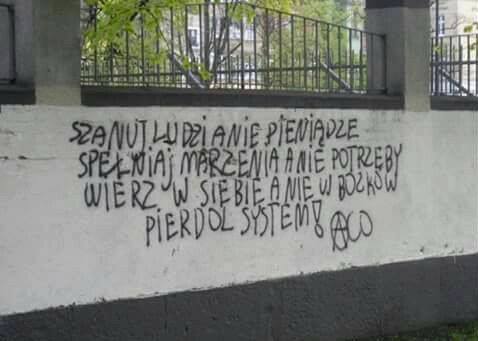 SZANUJ LUDZI A NIE PIENIĄDZE
SPEŁNIAJ MARZENIA A NIE POTRZEBY
WIERZ W SIEBIE A NIE W BOZKÓW
PIERDOL SYSTEM! ACO